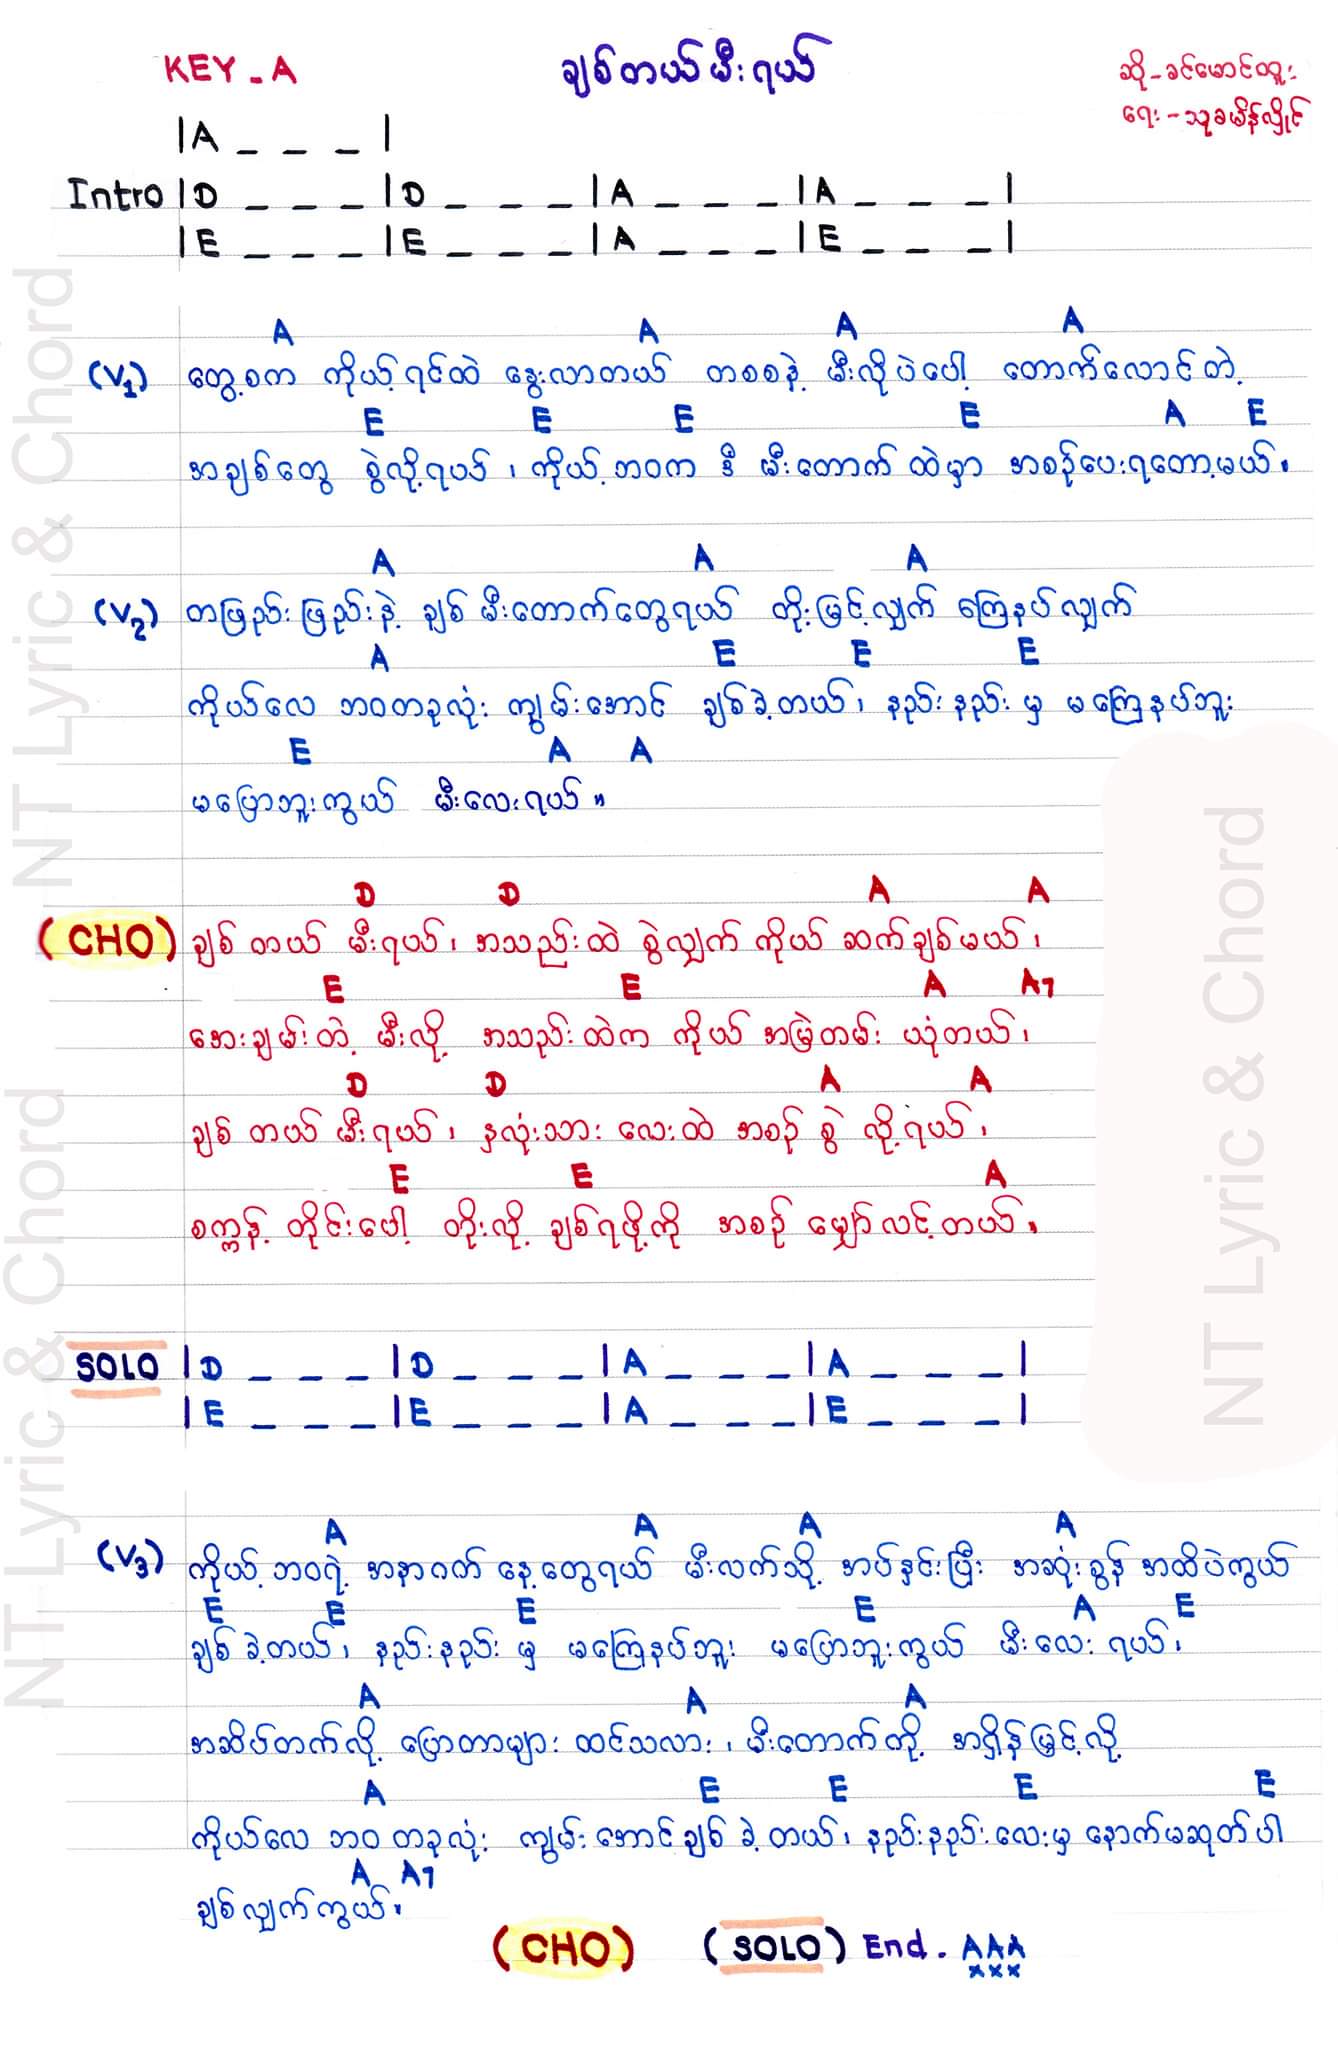 KEY - A
ချစ်တယ်မီးရယ်
ဆို - ခင်မောင်ထူး
ရေး - သုခမိန်လှိုင်
|A _ _ _|
Intro |D _ _ _|D _ _ _|A _ _ _|A _ _ _|
|E _ _ _|E _ _ _|A _ _ _|E _ _ _|
A A A A
(V1) တွေ့စက ကိုယ့်ရင်ထဲ နွေးလာတယ် တစစနဲ့ မီးလိုပဲပေါ့ တောက်လောင်တဲ့
E E E E A E
အချစ်တွေ စွဲလို့ရယ်၊ ကိုယ့်ဘဝက ဒီ မီးတောက် ထဲမှာ အစဉ်ပေးရတော့မယ်။
A A A
(V2) တဖြည်းဖြည်းနဲ့ ချစ် မီးတောက်တွေရယ် တိုးမြှင့်လျှက် ကြေနပ်လျှက်
A E E E
ကိုယ်လေ ဘဝတခုလုံး ကျွမ်းအောင် ချစ်ခဲ့တယ်၊ နည်းနည်းမှ မကြေနပ်ဘူး
E A A
မပြောဘူးကွယ် မီးလေးရယ်။
D D A A
(CHO) ချစ် တယ် မီးရယ်၊ အသည်းထဲ စွဲလျှက် ကိုယ် ဆက်ချစ်မယ်၊
E E A A7
အေးချမ်းတဲ့ မီးလို့ အသည်းထဲက ကိုယ် အမြဲတမ်း ယုံတယ်၊
D D A A
ချစ် တယ် မီးရယ်၊ နှလုံးသား လေးထဲ အစဉ် စွဲ လို့ရယ်၊
E E A
စက္ကန့် တိုင်းပေါ့ တိုးလို့ ချစ်ရဖို့ကို အစဉ် မျှော်လင့်တယ်။
SOLO |D _ _ _|D _ _ _|A _ _ _|A _ _ _|
|E _ _ _|E _ _ _|A _ _ _|E _ _ _|
A A A A
(V3) ကိုယ့်ဘဝရဲ့ အနာဂက် နေ့တွေရယ် မီးလက်သို့ အပ်နှင်းပြီး အဆုံးစွန် အထိပဲကွယ်
E E E E A E
ချစ်ခဲ့တယ်၊ နည်းနည်းမှ မကြေနပ်ဘူး မပြောဘူးကွယ် မီးလေးရယ်၊
A A A
အဆိပ်တက်လို့ ပြောတာများ ထင်သလား၊ မီးတောက်ကို့ အရှိန်မြှင့်လို့
A E E E E
ကိုယ်လေ ဘဝ တခုလုံး ကျွမ်းအောင်ချစ်ခဲ့တယ်၊ နည်းနည်းလေးမှ နောက်မဆုတ်ပါ
A A7
ချစ်လျှက်ကွယ်။
(CHO) (SOLO) End. A A A
x x x
NT Lyric & Chord
NT Lyric & Chord
NT Lyric & Chord
NT Lyric & Chord